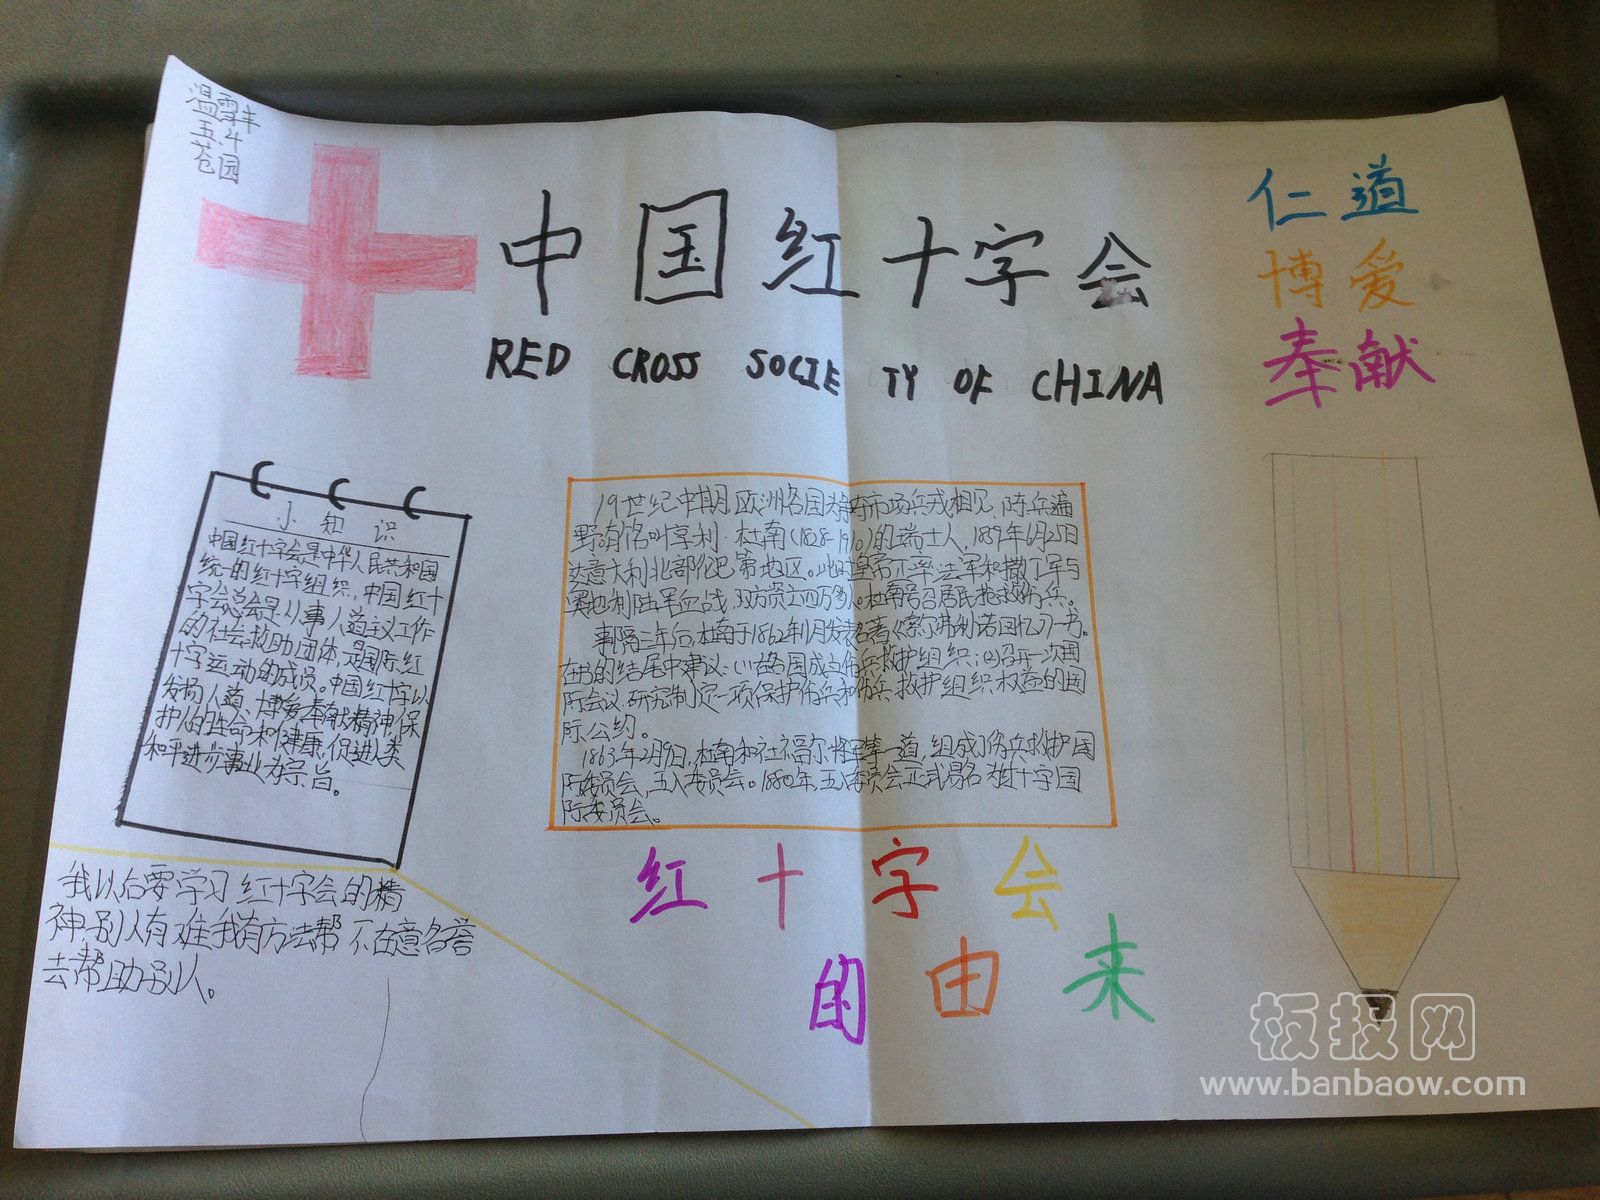 温雪丰
五.4
苍园
中国红十字会
RED CROSS SOCIETY OF CHINA
仁道
博爱
奉献
小知识
中国红十字会是中华人民共和国
统一的红十字组织,中国红十
字会总会是从事人道主义工作
的社会救助团体,是国际红
十字运动的成员。中国红十字以
发扬人道、博爱奉献精神,保
护人的生命和健康,促进人类
和平进步事业为宗旨。
19世纪中期,欧洲各国为争夺市场兵戎相见,陈兵遍
野。有名叫亨利·杜南(1828-1910)的瑞士人,1859年6月25日
达意大利北部伦巴第地区。此时皇帝正率法军和撒丁军与
奥地利陆军血战,双方死亡四万多人。杜南号召居民抢救伤兵。
事隔三年后,杜南于1862年11月发表名著《索尔弗利诺回忆》一书。
在书的结尾中建议:(1)在各国成立伤兵救护组织;(2)召开一次国
际会议,研究制定一项保护伤兵和伤兵救护组织权益的国
际公约。
1863年2月9日,杜南和社福尔将军等一道,组成了伤兵救护国
际委员会,五人委员会。1880年,五人委员会正式易名为红十字国
际委员会。
红十字会
的由来
我以后要学习红十字会的精
神,别人有难我有方法帮 不在意名誉
去帮助别人。
板报网
www.banbaow.com